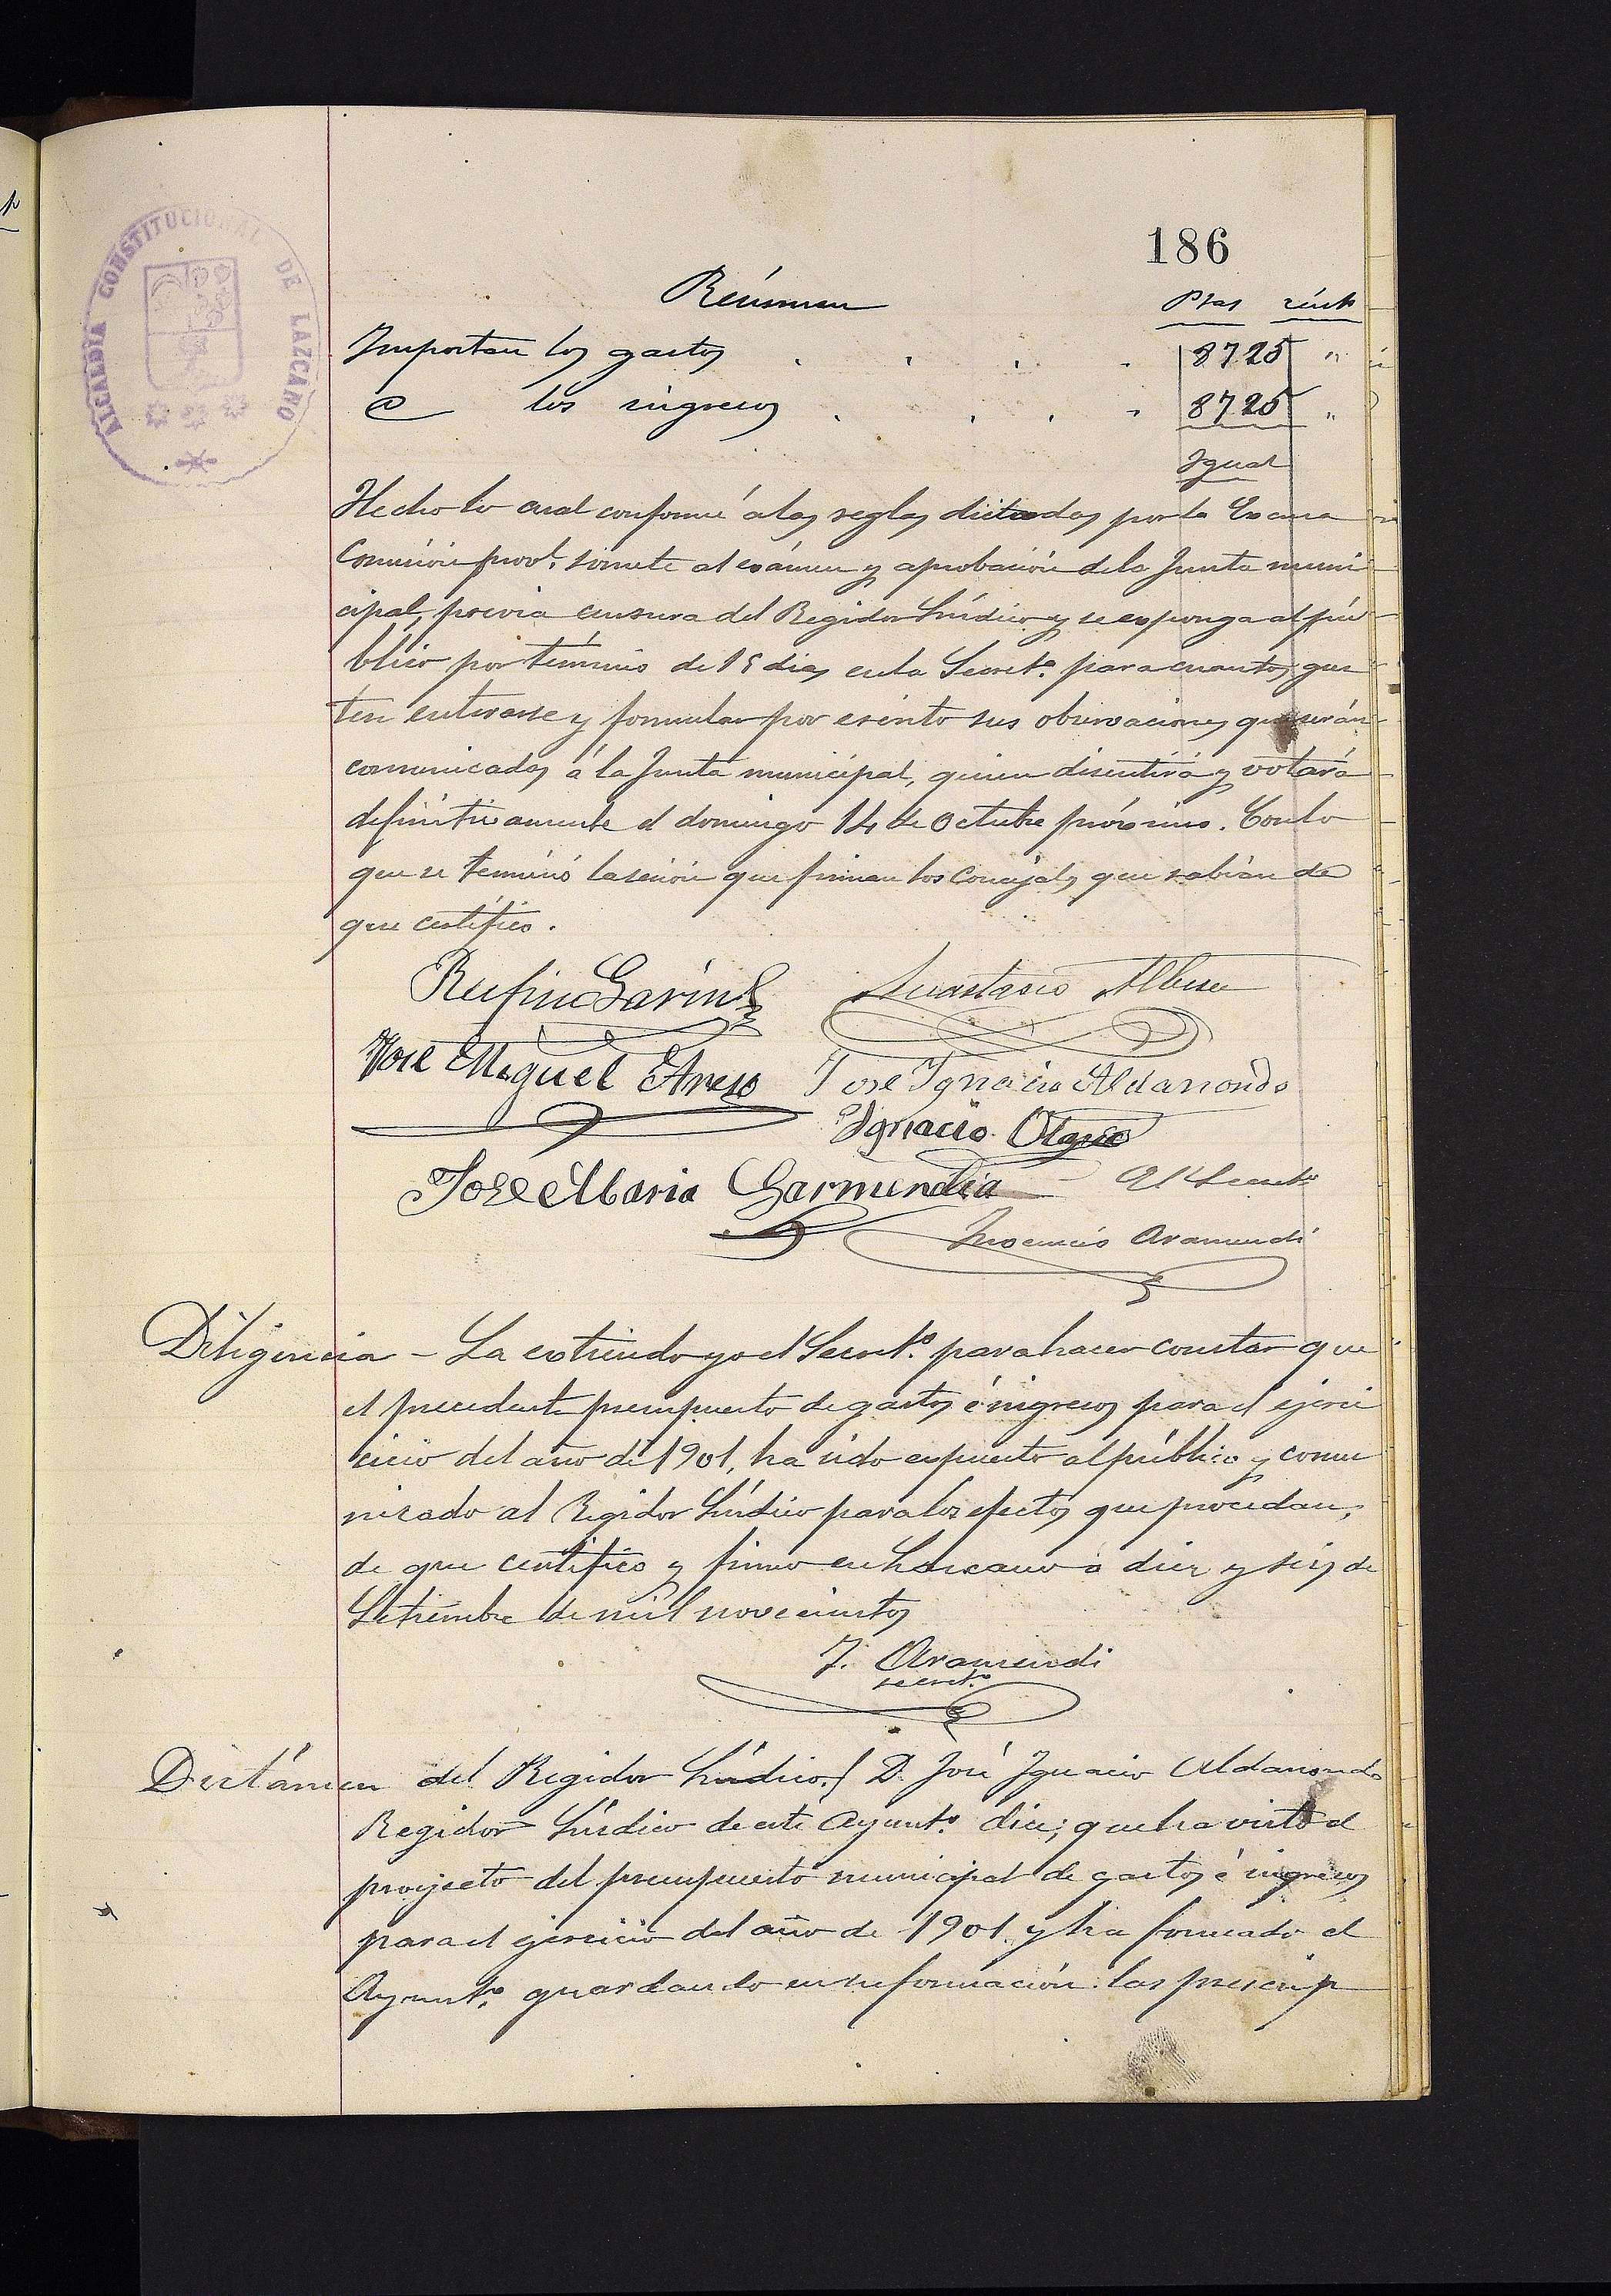 186
ALCALDIA CONSTITUCIONAL DE LAZCANO
Resúmen Ptas cénts
Importan los gastos . . . . 8725 "
@ los ingresos . . . . 8725 "
Igual
Hecho lo cual conforme á las reglas dictadas por la Excma
Comisión provl. somete al exámen y aprobación de la Junta muni
cipal, previa censura del Regidor Síndico y se exponga al pú
blico por término de 15 dias en la Secret.ª para cuantos gus
ten enterarse y formular por escrito sus observaciones que serán
comunicadas á la Junta municipal, quien discutirá y votará
definitivamente el domingo 14 de Octubre próximo. Con lo
que se terminó la sesión que firman los Concejales que sabian de
que certifico.
Rufino Anastasio
José Miguel José Ignacio Aldasoro
Ignacio
José Maria Garmendia El Secret.º
Inocencio Aramendi
Diligencia - La extiendo yo el Secret.º para hacer constar que
el precedente presupuesto de gastos é ingresos para el ejerci
cicio del año de 1901, ha sido expuesto al público y comu
nicado al Regidor Síndico para los efectos que procedan,
de que certifico y firmo en Lazcano a diez y seis de
Setiembre de mil novecientos
I. Aramendi
secret.º
Dictámen del Regidor Síndico. D. José Ignacio
Regidor Síndico de este Ayunt.º dice; que ha visto el
proyecto del presupuesto municipal de gastos é ingresos
para el ejercicio del año de 1901 y ha formado el
Ayunt.º guardando en su formación las prescrip